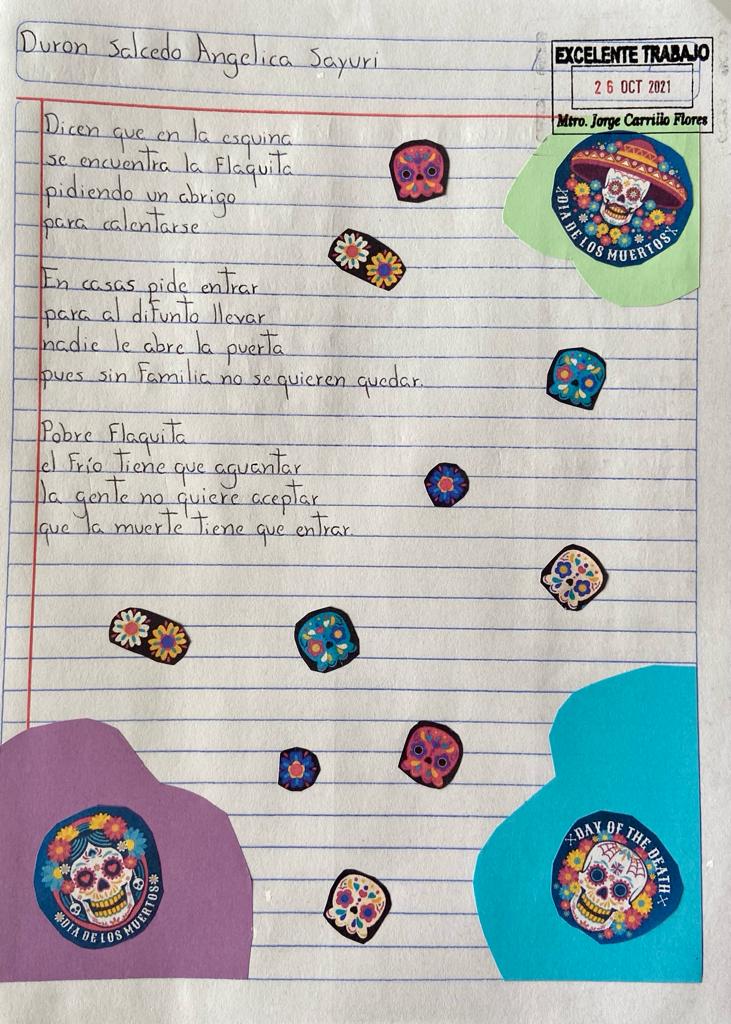 Duron Salcedo Angelica Sayuri
EXCELENTE TRABAJO
26 OCT 2021
Mtro. Jorge Carrillo Flores
Dicen que en la esquina
se encuentra la Flaquita
pidiendo un abrigo
para calentarse
¡DIA DE LOS MUERTOS!
En casas pide entrar
para al difunto llevar
nadie le abre la puerta
pues sin Familia no se quieren quedar.
Pobre Flaquita
el Frío tiene que aguantar
la gente no quiere aceptar
que la muerte tiene que entrar.
DIA DE LOS MUERTOS
DAY OF THE DEATH